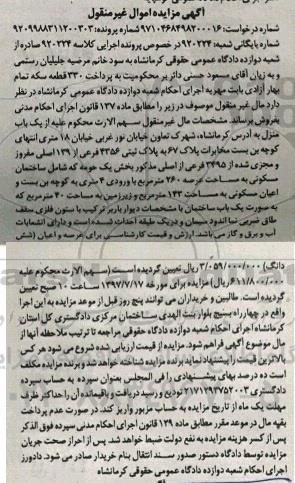 آگهی مزایده اموال غیرمنقول
شماره درخواست: ۹۷۱۰۴۶۸۴۹۸۲۰۰۰۱۶ شماره پرونده: ۹۲۰۹۹۸۸۳۱۱۲۰۰۳۰۳
شماره بایگانی شعبه: ۹۲۰۲۲۴ در خصوص پرونده اجرایی کلاسه ۹۲۰۲۲۴ صادره از
شعبه دوازده دادگاه عمومی حقوقی کرمانشاه به سود خانم مرضیه جلیلیان رستمی
و به زیان آقای مسعود حسنی دائر بر محکومیت به پرداخت ۳۳۰ قطعه سکه تمام
بهار آزادی بابت مهریه اجرای احکام شعبه دوازده دادگاه عمومی کرمانشاه در نظر
دارد مال غیر منقول موصوف در زیر را مطابق ماده ۱۳۷ قانون اجرای احکام مدنی
بفروش برساند. مشخصات مال غیرمنقول سهم الارث محکوم علیه از یک باب
منزل به آدرس کرمانشاه، شهرک تعاون خیابان نور غربی خیابان ۱۸ متری انتهای
کوچه بن بست مخابرات پلاک ۶۷ به پلاک ثبتی ۴۳۵۶ فرعی از ۱۳۹ اصلی مفروز
و مجزی شده از ۲۴۹۵ فرعی از اصلی مذکور بخش یک حومه که شامل ساختمان
مسکونی به مساحت عرصه ۲۶۰ مترمربع با ورودی ۴ متری به کوچه بن بست و
اعیان مسکونی به مساحت ۱۴۳ مترمربع و زیرزمین به مساحت ۴۰ مترمربع که
به صورت یک باب ساختمان با مشخصات دیوار باربر ترکیب با ستون فلزی سقف
طاق ضربی نما اندود سیمان و در یک طبقه احداث شده است و دارای انشعابات
آب و برق و گاز می باشد. ارزش و قیمت کارشناسی برای عرصه و اعیان (شش
دانگ) ۳/۰۵۹/۰۰۰/۰۰۰ ریال تعیین گردیده است (سهم الارث محکوم علیه
۶۱۱/۸۰۰/۰۰۰ ریال) مزایده برای مورخه ۱۳۹۷/۷/۱۷ ساعت ۱۰ صبح تعیین
گردیده است. طالبین و خریداران می توانند پنج روز قبل از موعد مزایده به این اجرا
واقع در چهارراه بسیج بلوار بنت الهدی ساختمان مرکزی دادگستری کل استان
کرمانشاه اجرای احکام شعبه دوازده دادگاه حقوقی مراجعه تا ترتیب ملاحظه آنها از
مال موضوع آگهی فراهم شود. مزایده از قیمت ارزیابی شده شروع می شود هر کس
بالاترین قیمت را پیشنهاد نماید برنده مزایده شناخته خواهد شد و برنده مزایده مکلف
است ده درصد بهای پیشنهادی را فی المجلس بعنوان سپرده به حساب سپرده
دادگستری ۲۱۷۱۲۹۳۷۵۲۰۰۳ تودیع و رسید دریافت و باقیمانده آن را حداکثر ظرف
مهلت یک ماه از تاریخ مزایده به حساب مزبور واریز کند. در صورت عدم پرداخت
بقیه مال در موعد مقرر مطابق ماده ۱۲۹ قانون اجرای احکام مدنی سپرده فوق الذکر
پس از کسر هزینه مزایده به نفع دولت ضبط خواهد شد. پس از احراز صحت جریان
مزایده توسط دادگاه دستور صدور سند انتقال بنام خریدار صادر می شود. دادورز
اجرای احکام شعبه دوازده دادگاه عمومی حقوقی کرمانشاه